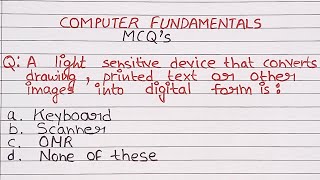 COMPUTER FUNDAMENTALS
MCQ's
Q: A light sensitive device that converts
drawing, printed text or other
images into digital form is:
a. Keyboard
b. Scanner
c. OMR
d. None of these